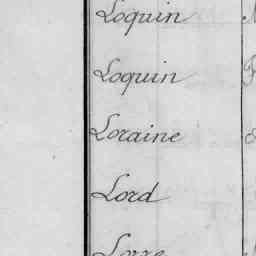 Loquin
Loquin
Loraine
Lord